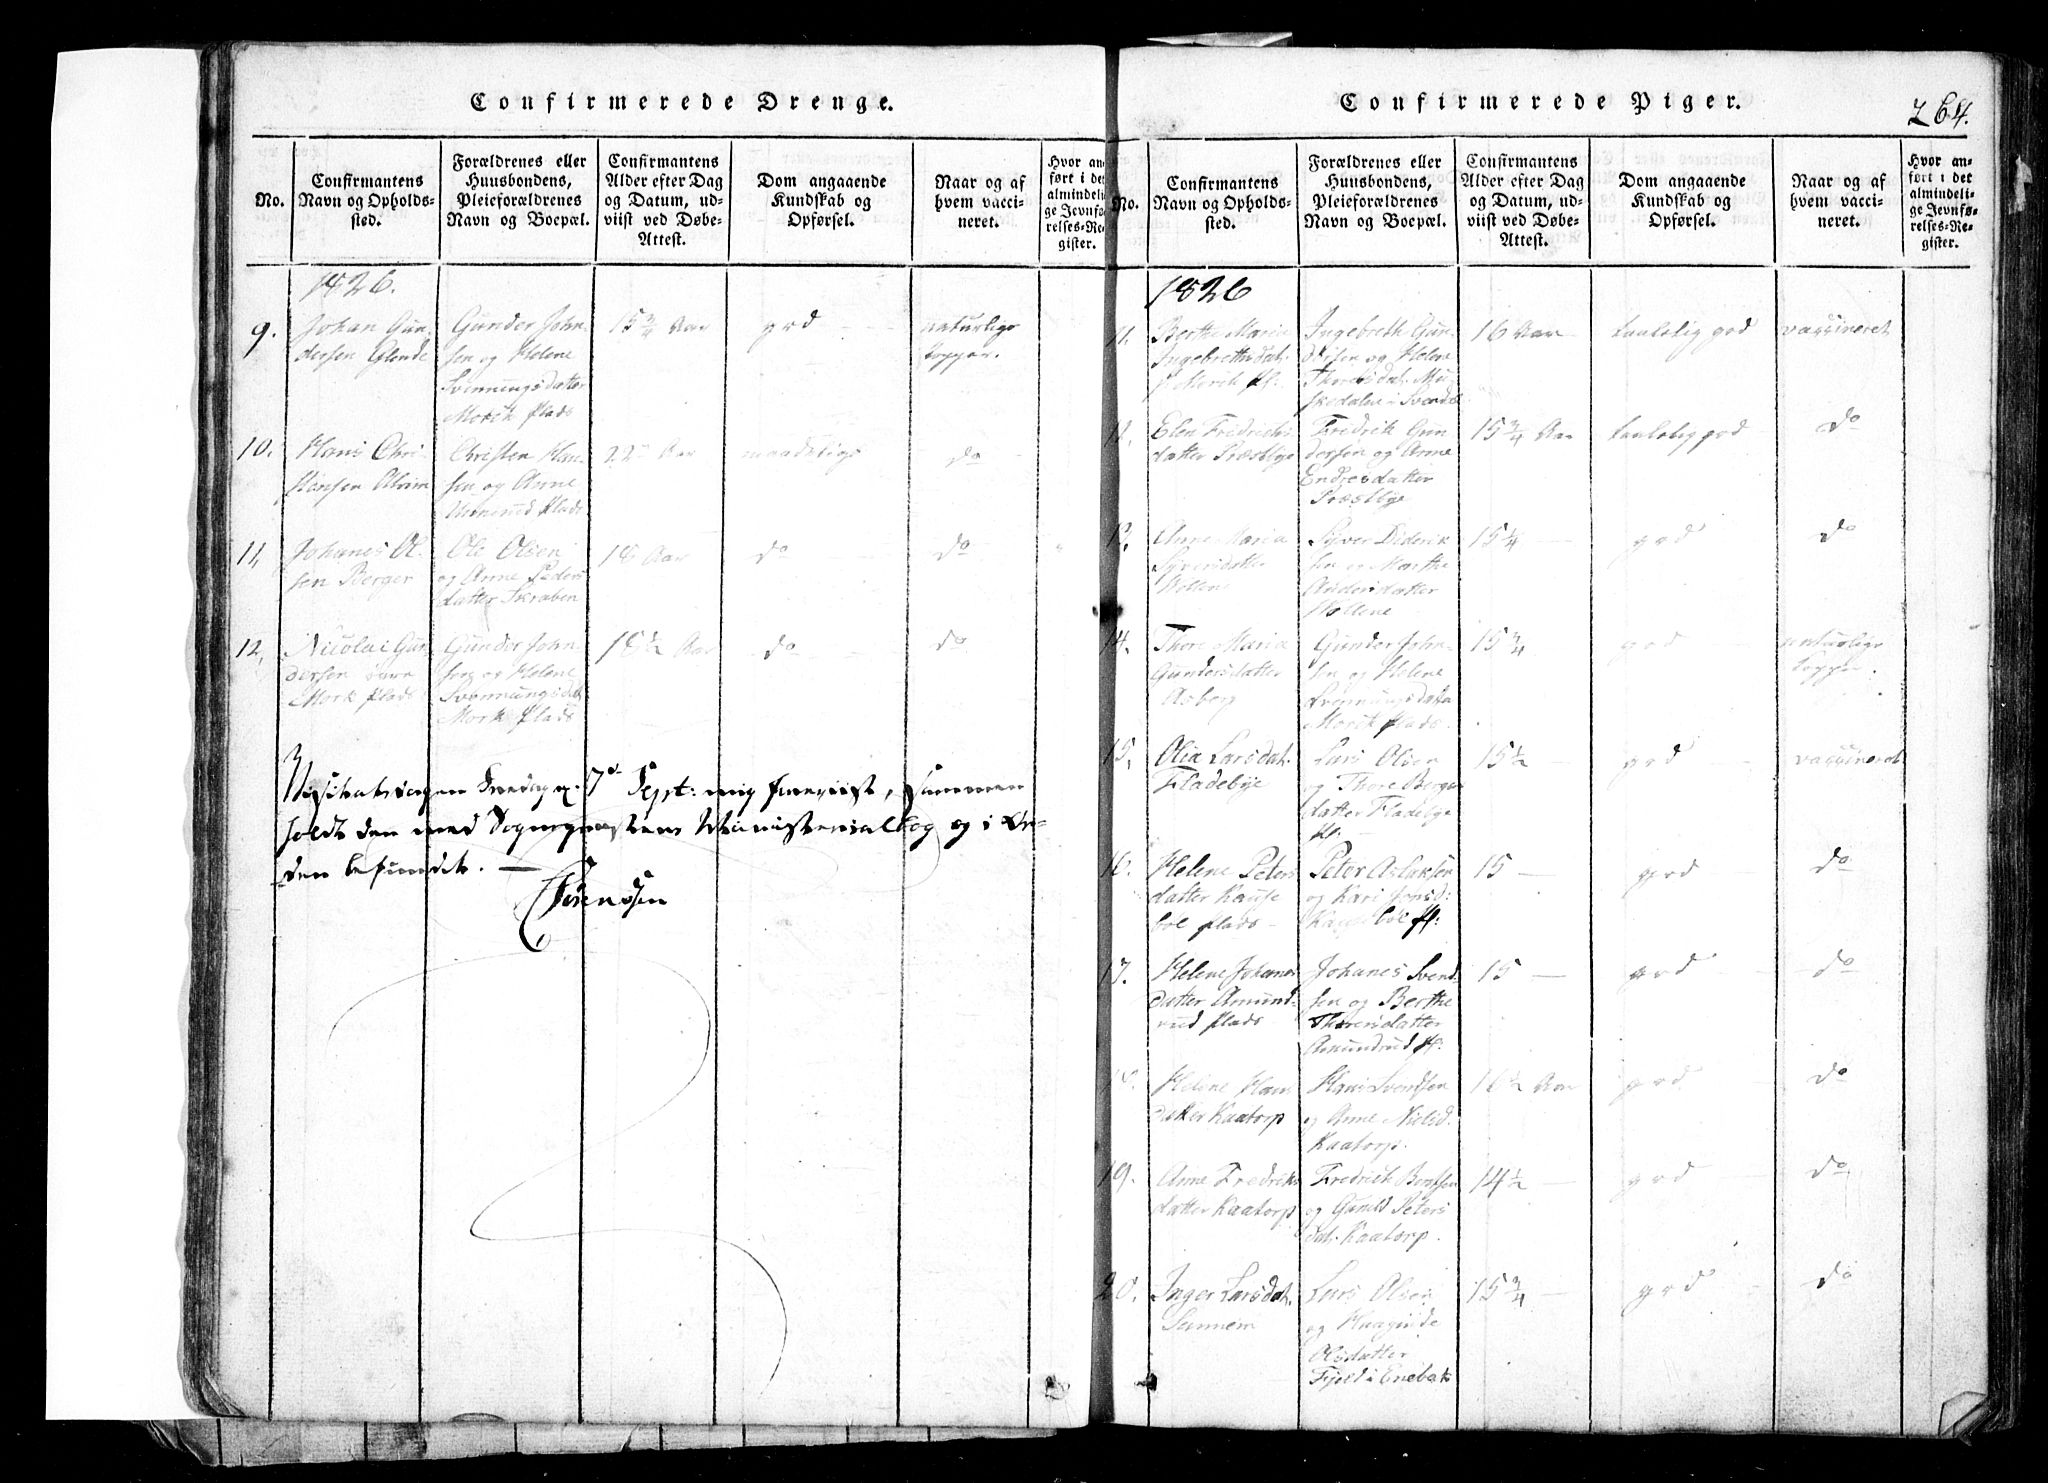 Confirmerede Drenge.
No.
Confirmantens
Navn og Opholds-
sted.
Forældrenes eller
Huusbondens,
Pleieforældrenes
Navn og Boepæl.
Confirmantens
Alder efter Dag
og Datum, ud-
viist ved Døbe-
Attest.
Dom angaaende
Kundskab og
Opførsel.
Naar og af
hvem vacci-
neret.
Hvor an-
ført i det
almindeli-
ge Jevnfø-
relses-Re-
gister.
1826.
9.
Johan Gun-
dersen
Gunder John-
sen og Helene
Svenningsdatter
Mork Plads
15 3/4 Aar
god
naturlige
Kopper.
10.
Hans Chri-
stensen
Christen Han-
sen og Anne
Plads
22 Aar
maadelige
do
11,
Johanes Ol-
sen Berger
Ole Olsen
og Anne Peders
datter Skraben
18 Aar
do
do
12,
Nicolai Gun-
dersen
Mork Plads
Gunder John-
sen og Helene
Svennungsdat
Mork Plads
18 1/2 Aar
do
do
7de Sept: mig foreviist, sammen
holdt den med Sognepræstens Ministerialbog og i Or-
den befundet.
Sørensen
Confirmerede Piger.
264.
No.
Confirmantens
Navn og Opholds-
sted.
Forældrenes eller
Huusbondens,
Pleieforældrenes
Navn og Boepæl.
Confirmantens
Alder efter Dag
og Datum, ud-
viist ved Døbe-
Attest.
Dom angaaende
Kundskab og
Opførsel.
Naar og af
hvem vacci-
neret.
Hvor an-
ført i det
almindeli-
ge Jevnfø-
relses-Re-
gister.
1826
11.
Berthe Maria
Ingebrethsdat.
Ingebreth Gun-
dersen og Helene
Thoresdat.
16 Aar
taalelig god
vaccineret
Elen Fredriks
datter Præstbye
Fredrik Gun
dersen og Anne
Endresdatter
Præstbye
15 3/4 Aar
taalelig god
do
13,
Anne Maria
Syversdatter
Syver Diderik
sen og Marthe
Andersdatter
15 1/4
god
do
14.
Thore Maria
Gundersdatter
Aaberg
Gunder John-
sen og Helene
Svennungsdatter
Mork Plads.
15 3/4
god
naturlige
Kopper.
15,
Olia Larsdat.
Fladebye
Lars Olsen
og Thore Berger
datter Fladebye
Pl.
15 1/2
god
vaccineret
16.
Helene Peters
datter Kause
bol Plads
Peter Aslaksen
og Kari Jonsd:
15
god
do
17.
Helene Johanes
datter Amund-
rud Plads
Johanes Svend
sen og Berthe
Thoresdatter
Amundrud Pl:
15
god
do
18.
Helene Hans
datter Kaatorp
Hans Svendsen
og Anne Nielsd.
Kaatorp.
16 1/2 Aar
god
do
19.
Anne Fredriks
datter Kaatorp
Fredrik Berntsen
og Gunild Peters
dat. Kaatorp.
14 1/2
god
do
20.
Inger Larsdat.
Sannem
Lars Olsen
og
Olsdatter
Fjeld i Enebak
15 3/4
god
do